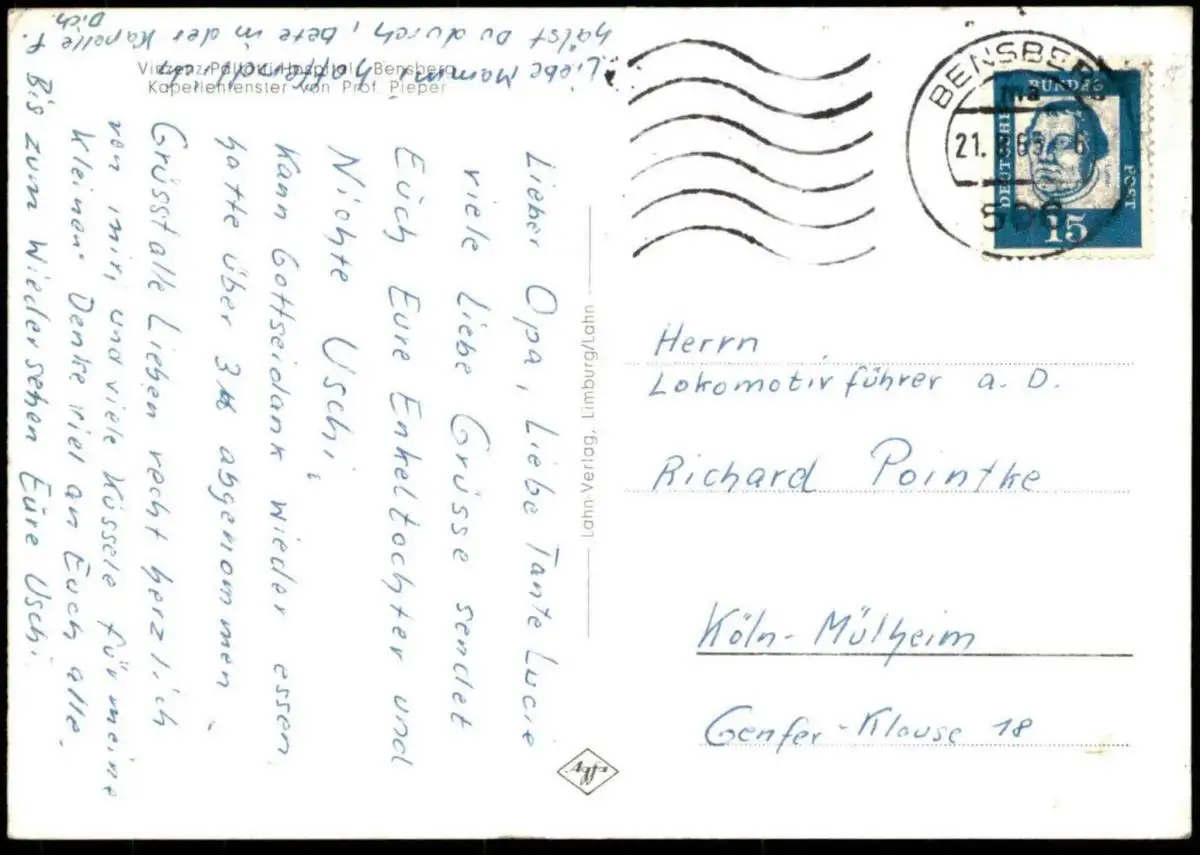 Vinzenz-Pallotti-Hospital, Bensberg
Kapellenfenster von Prof. Pieper
Lieber Opa, Liebe Tante Lucie
viele Liebe Grüsse sendet
Euch Eure Enkeltochter und
Nichte Uschi
Kann Gottseidank wieder essen
hatte über 3 abgenommen.
Grüsst alle Lieben recht herzlich
von mir, und viele Küssele für meine
Kleinen. Denke viel an Euch alle.
Bis zum Wiedersehen Eure Uschi.
Liebe Mammi, hoffentlich
hälst Du durch, bete in der Kapelle f.
Dich.
Lahn-Verlag, Limburg/Lahn
Agfa
BENSBERG
21.
DEUTSCHE BUNDESPOST
15
Herrn
Lokomotivführer a. D.
Richard Pointke
Köln-Mülheim
Genfer-Klause 18